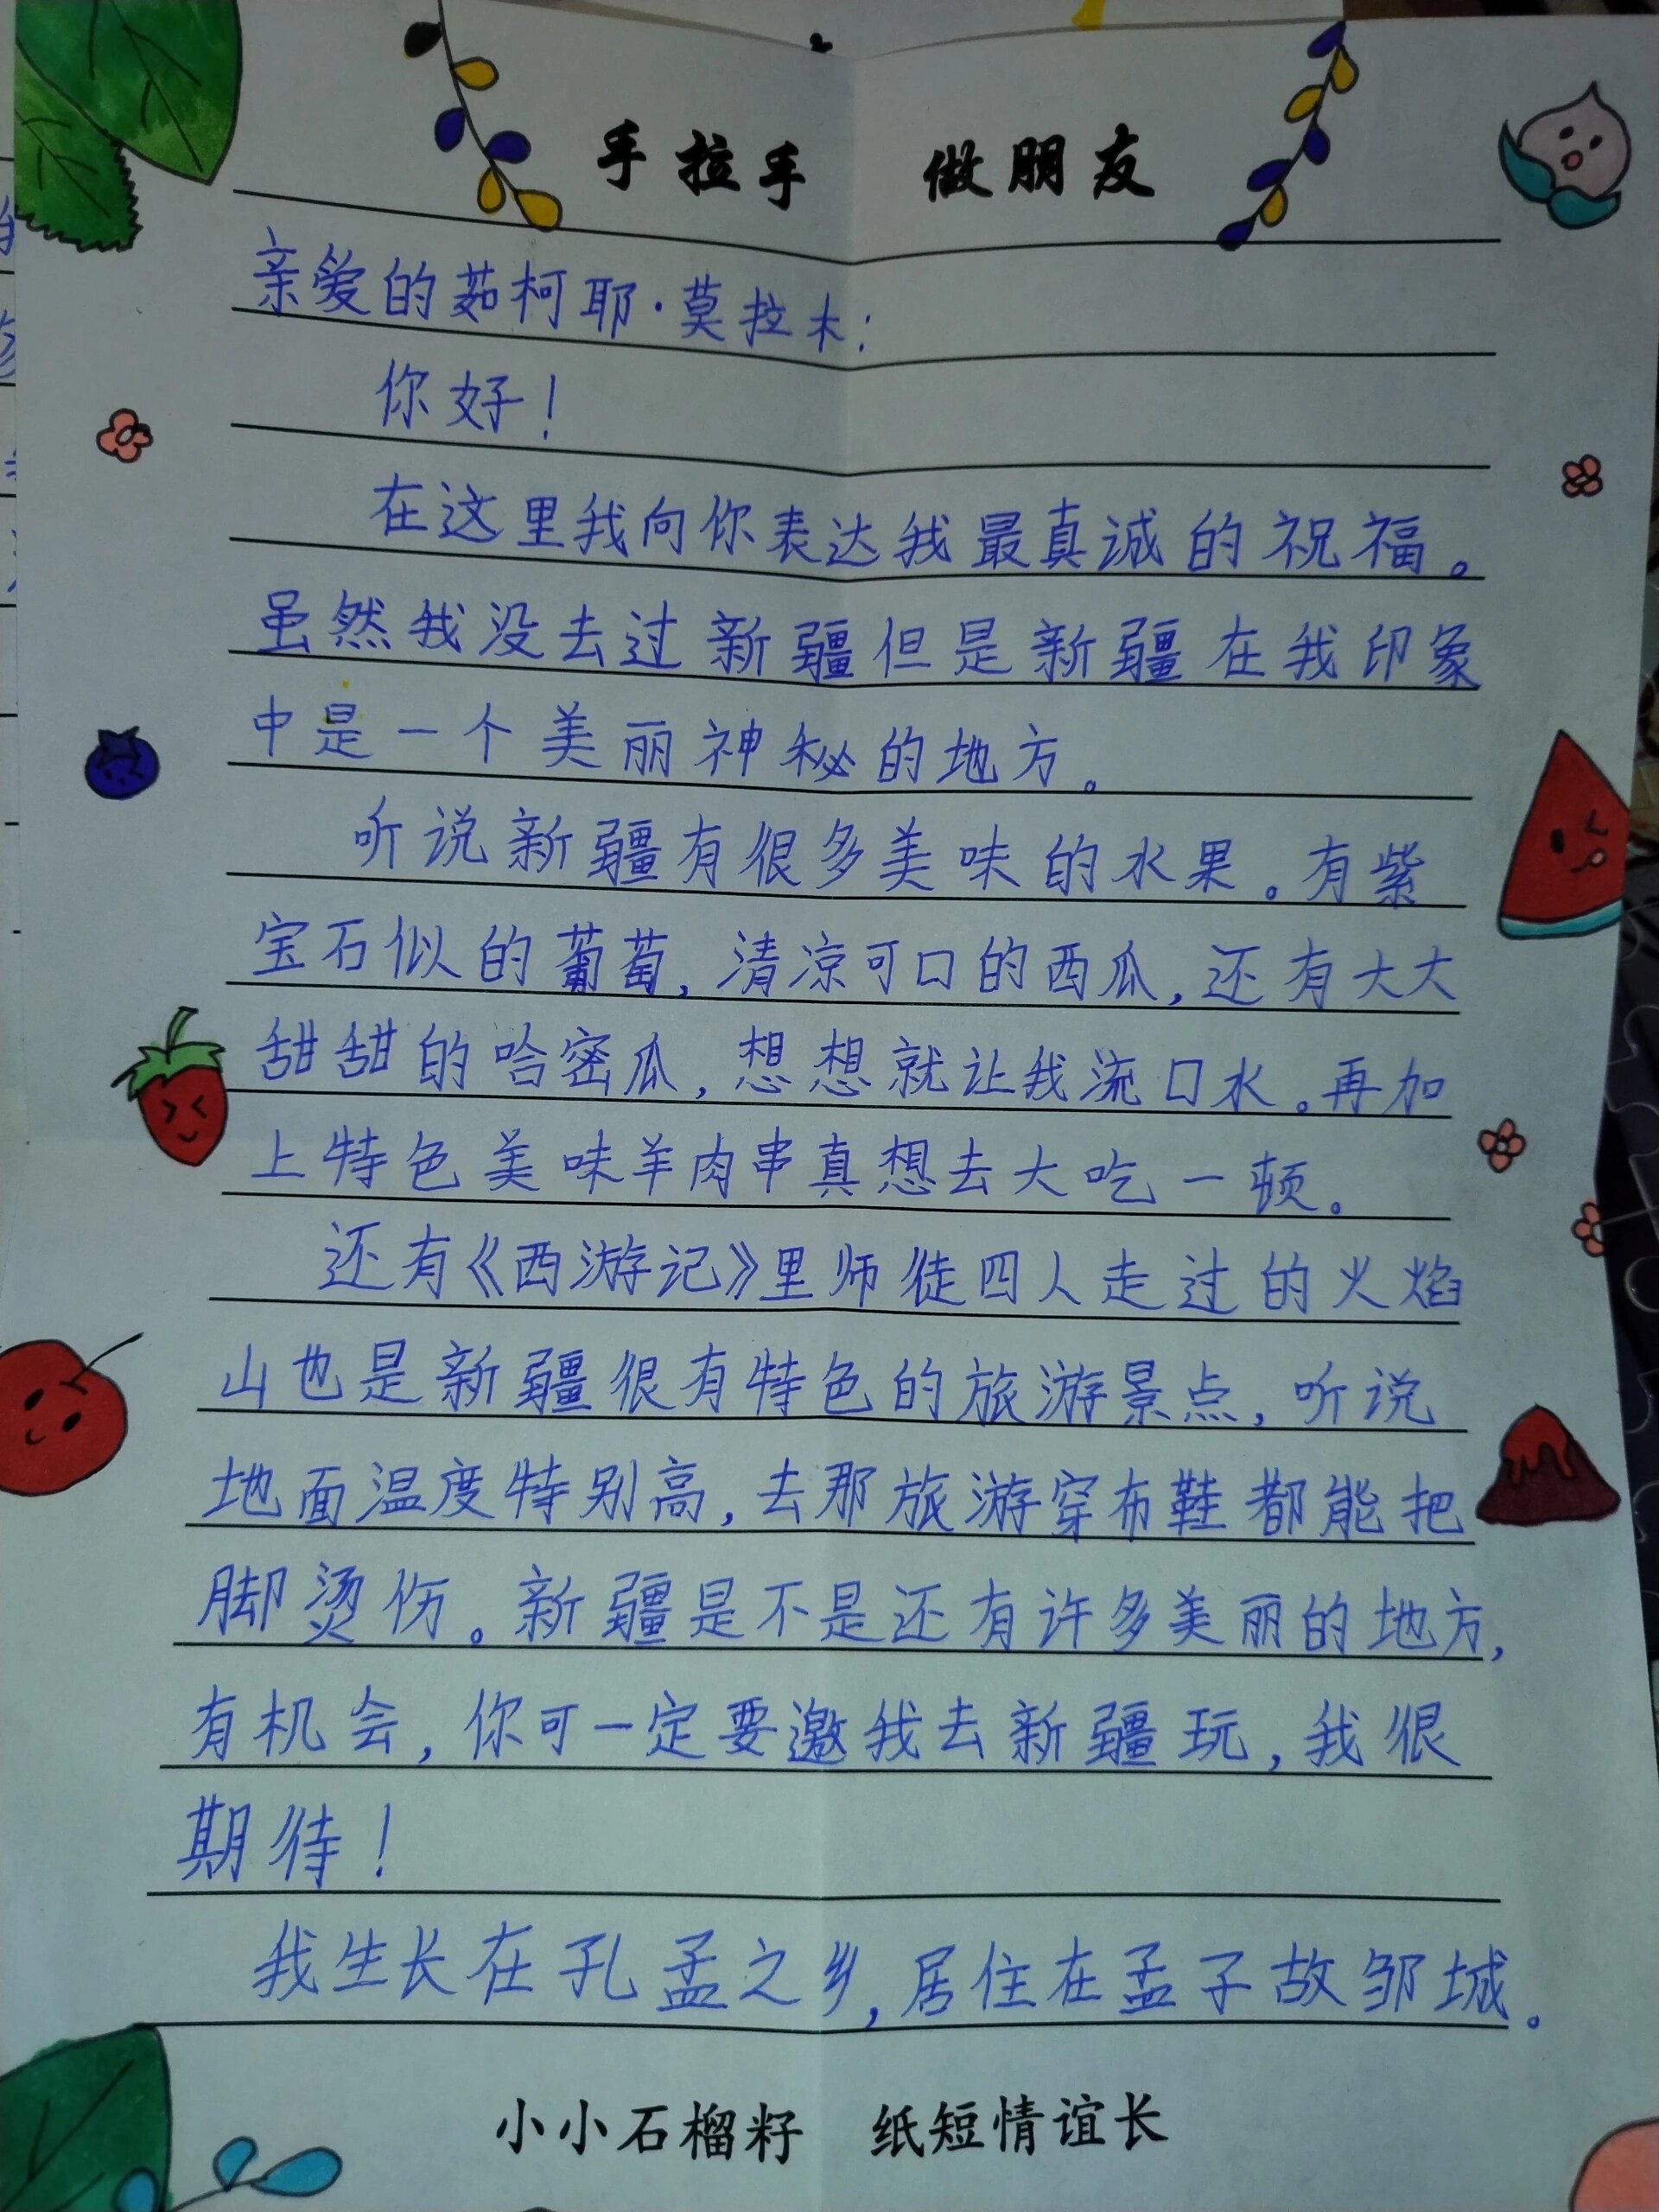 手拉手 做朋友
亲爱的茹柯耶·莫拉木:
你好!
在这里我向你表达我最真诚的祝福。
虽然我没去过新疆但是新疆在我印象
中是一个美丽神秘的地方。
听说新疆有很多美味的水果。有紫
宝石似的葡萄,清凉可口的西瓜,还有大大
甜甜的哈密瓜,想想就让我流口水。再加
上特色美味羊肉串真想去大吃一顿。
还有《西游记》里师徒四人走过的火焰
山也是新疆很有特色的旅游景点,听说
地面温度特别高,去那旅游穿布鞋都能把
脚烫伤。新疆是不是还有许多美丽的地方,
有机会,你可一定要邀我去新疆玩,我很
期待!
我生长在孔孟之乡,居住在孟子故邹城。
小小石榴籽 纸短情谊长